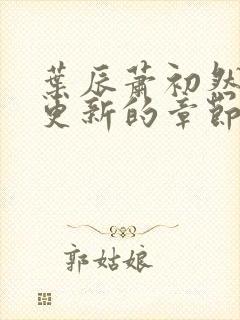 葉辰蕭初然
更新的章節
郭姑娘